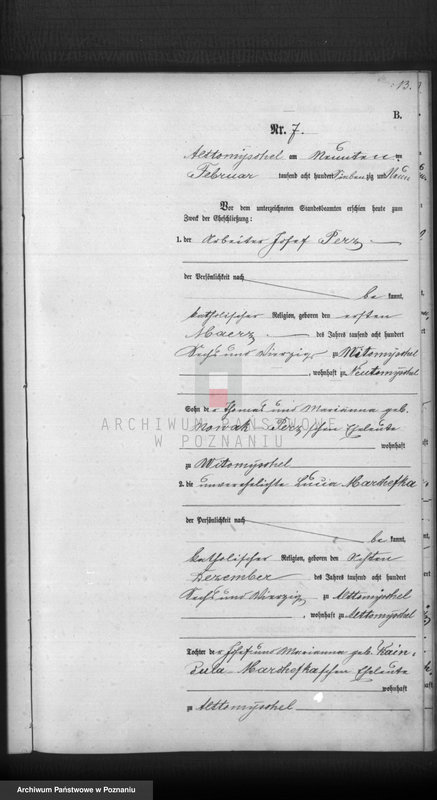 13.
B.
Nr. 7.
Alttomyschel am Neunten ten
Februar tausend acht hundert Sieben zig und Neun
Vor dem unterzeichneten Standesbeamten erschien heute zum
Zweck der Eheschließung:
1. der Arbeiter Josef Perz
der Persönlichkeit nach
be kannt,
katholischer Religion, geboren den ersten
Maerz des Jahres tausend acht hundert
Sechs und Vierzig zu Witomyschel
, wohnhaft zu Neutomyschel
Sohn der Thomas und Marianna geb.
Nowak Perz'schen Eheleute
wohnhaft
zu Witomyschel
2. die unverehelichte Lucia Marshofka
der Persönlichkeit nach
be kannt,
katholischer Religion, geboren den
Dezember des Jahres tausend acht hundert
Sechs und Vierzig zu Alttomyschel
, wohnhaft zu Alttomyschel
Tochter der Josef und Marianna geb.
Marshofka'schen Eheleute
wohnhaft
zu Alttomyschel
ARCHIWUM PAŃSTWOWE
W POZNANIU
Archiwum Państwowe w Poznaniu